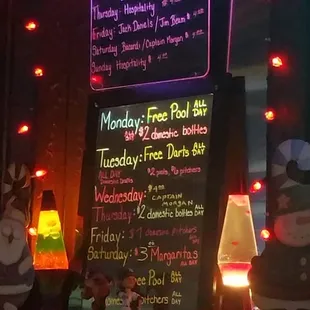 Thursday: Hospitality
Friday: Jack Daniels / Jim Beam $4.00
Saturday Bacardi / Captain Morgan $4.00
Sunday Hospitality
Monday: Free Pool ALL DAY
$2 domestic bottles
Tuesday: Free Darts ALL DAY
Domestic
Wednesday: $4.00
CAPTAIN
MORGAN
Thursday: $2 domestic bottles ALL DAY
Friday: $7 domestic Pitchers
Saturday: $3.00 Margaritas
Free Pool ALL DAY
Pitchers ALL DAY